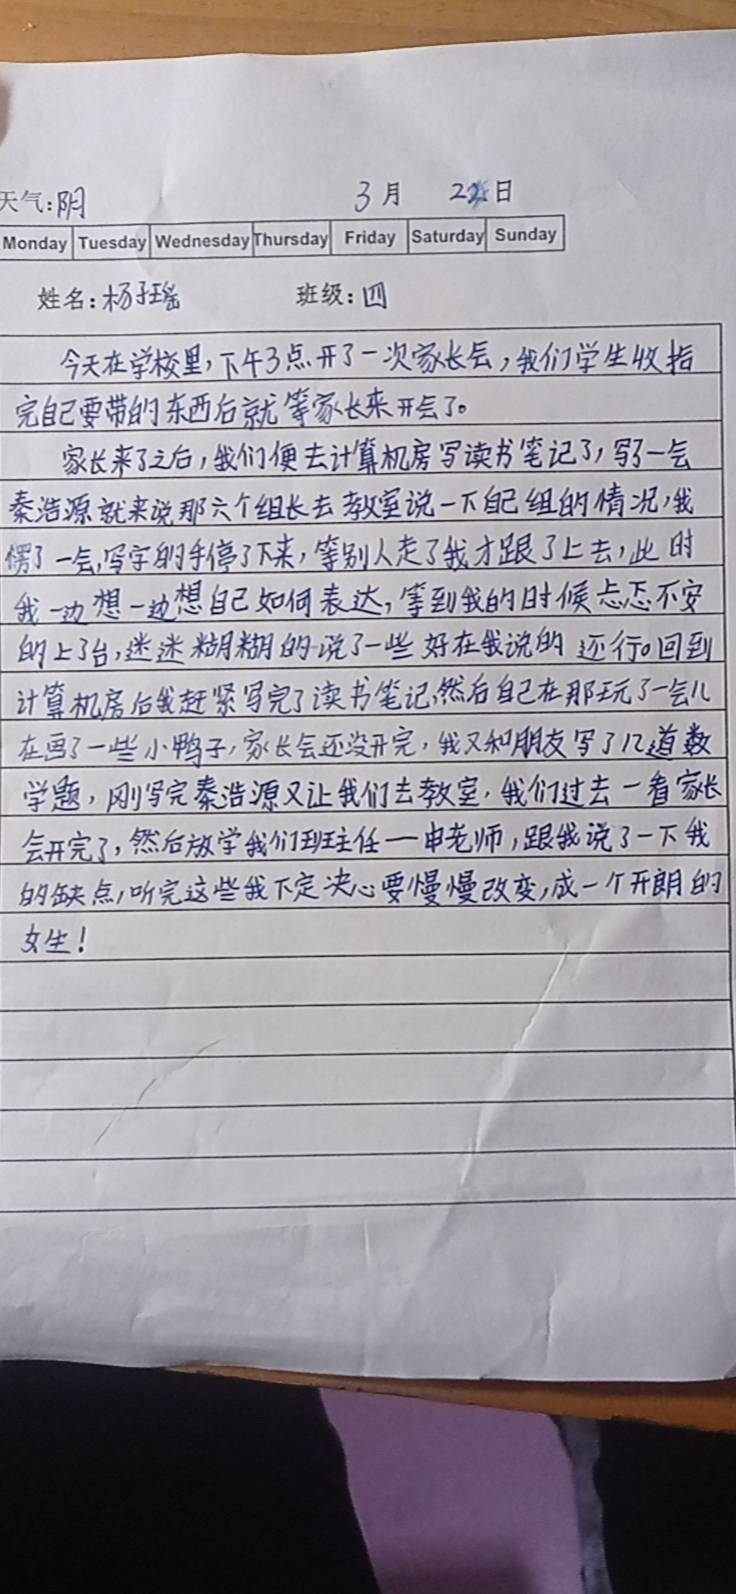 天气:阴 3月 22日
Monday Tuesday Wednesday Thursday Friday Saturday Sunday
姓名:杨子瑶 班级:四
今天在学校里,下午3点开了一次家长会,我们学生收拾
完自己要带的东西后就等家长来开会了。
家长来了之后,我们便去计算机房写读书笔记了,写了一会
秦浩源就来说那六个组长去教室说一下自己组的情况,我
愣了一会,写字的手停了下来,等别人走了我才跟了上去,此时
我一边想一边想自己如何表达,等到我的时候忐忑不安
的上了台,迷迷糊糊的说了一些好在我说的还行。回到
计算机房后我赶紧写完了读书笔记,然后自己在那玩了一会儿
在画了一些小鸭子,家长会还没开完,我又和朋友写了几道数
学题,刚写完秦浩源又让我们去教室,我们过去一看家长
会开完了,然后放学我们班主任一申老师,跟我说了一下我
的缺点,听完这些我下定决心要慢慢改变,成一个开朗的
女生!